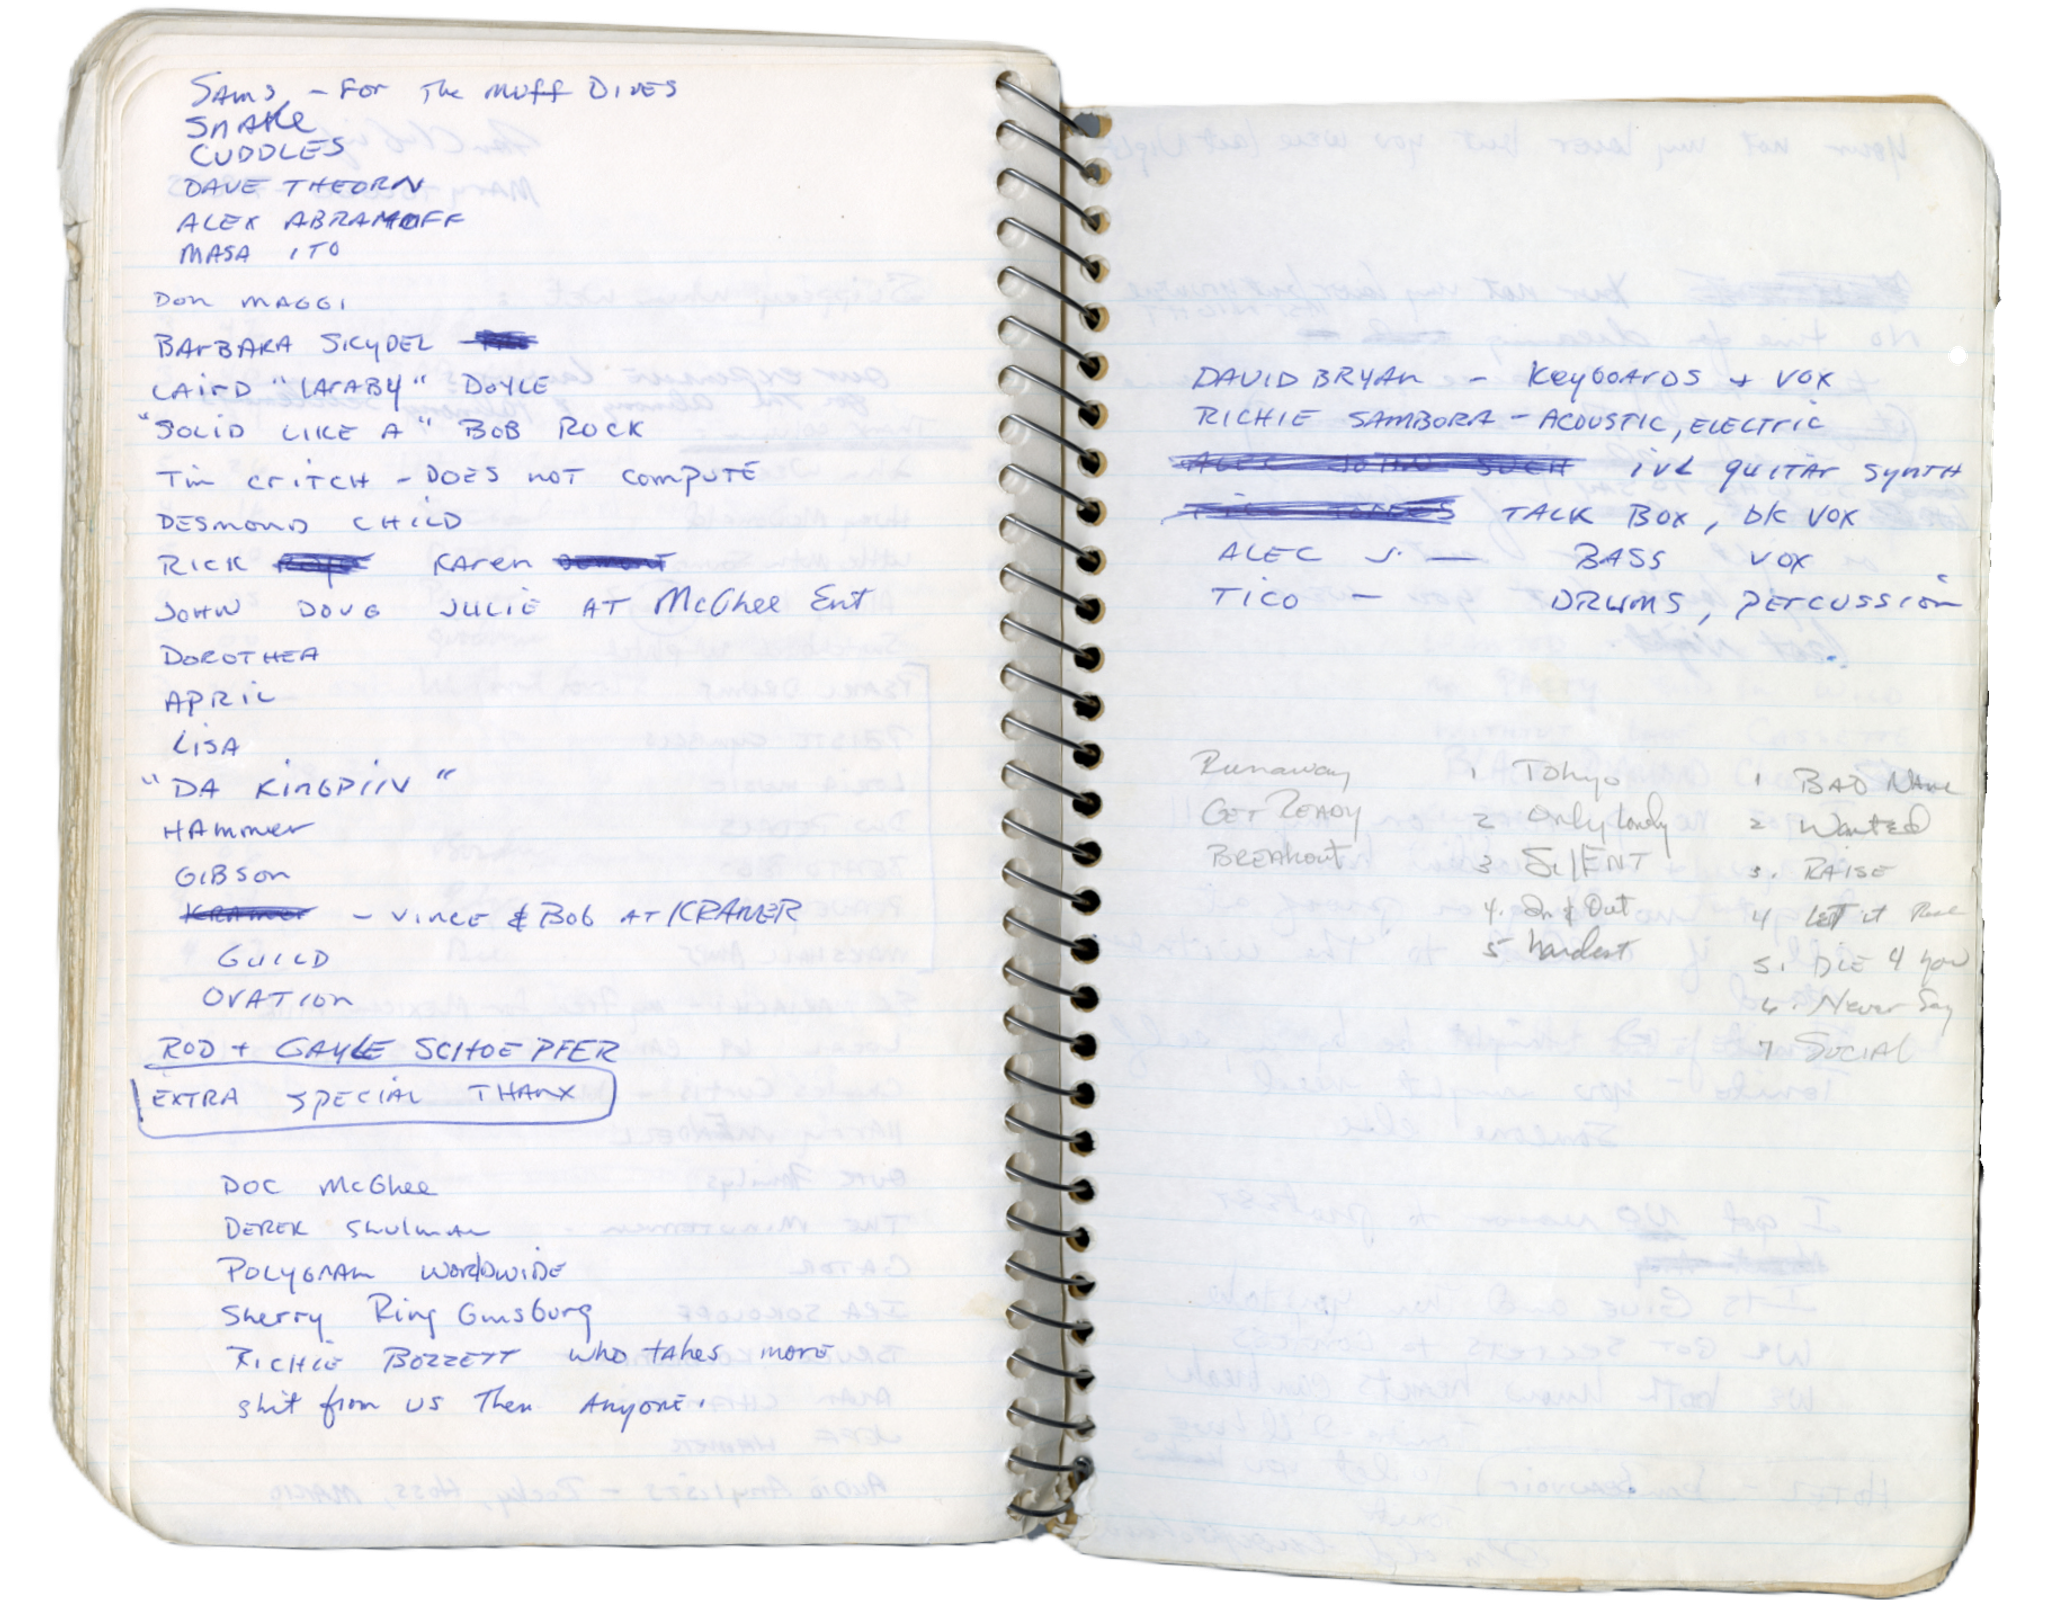 SAMS - FOR The MUFF DIVES
SNAKE
CUDDLES
DAVE THEORN
ALEX ABRAMOFF
MASA ITO
DON MAGGI
BARBARA SKYDEL
LAIRD "LARABY" DOYLE
"SOLID LIKE A" BOB ROCK
Tim CRITCH - DOES NOT COMPUTE
DESMOND CHILD
RICK KAREN
JOHN DOUG JULIE AT McGhee Ent
DOROTHEA
APRIL
LISA
"DA KINGPIN"
HAmmer
GIBSON
KRAMER - VINCE & BOB AT KRAMER
GUILD
OVATION
ROD + GAYLE SCHOEPFER
EXTRA SPECIAL THANX
DOC McGhee
DEREK Shulman
POLYGRAM WORLDWIDE
Sherry Ring Ginsburg
RICHIE BOZZETT WHO takes more
shit from US Then Anyone.
DAVID BRYAN - KEYBOARDS + VOX
RICHIE SAMBORA - ACOUSTIC, ELECTRIC
ALEC JOHN SUCH guitar synth
TICO TORRES TALK BOX, BK VOX
ALEC J. — BASS VOX
TICO — DRUMS, PERCUSSION
Runaway 1 Tokyo 1 BAD NAME
GET READY 2 Only Lonely 2 Wanted
BREAKOUT 3 SILENT 3. RAISE
4. In & Out 4 LET it
5 hardest 5. DIE 4 You
6. Never Say
7 SOCIAL